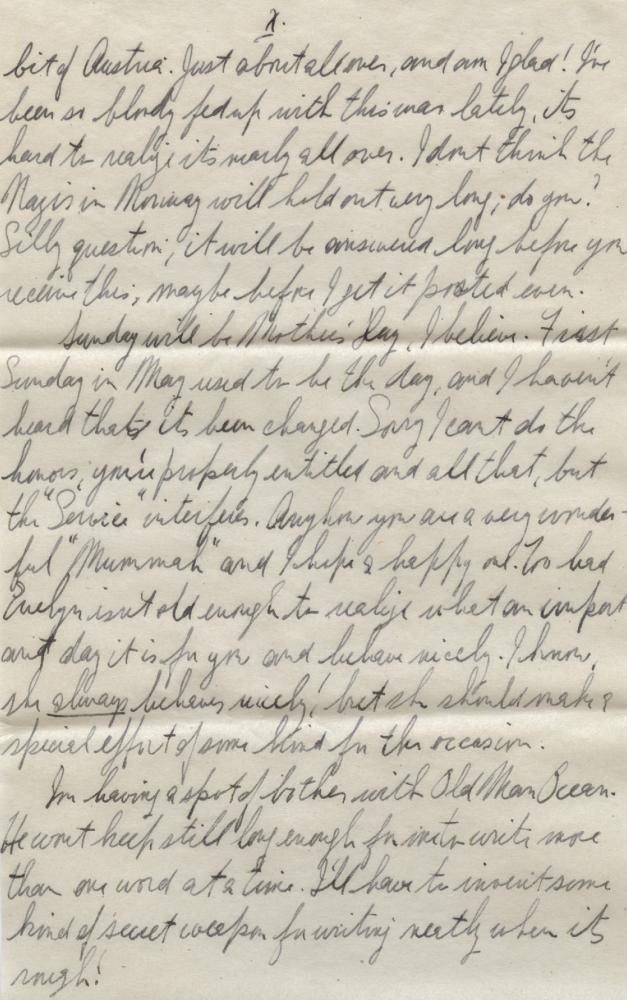 X.
bit of Austria. Just about all over, and am I glad! I've
been so bloody fed up with this war lately, its
hard to realize it's nearly all over. I dont think the
Nazis in Norway will hold out very long; do you?
Silly question, it will be answered long before you
receive this, maybe before I get it posted even.
Sunday will be Mothers' Day, I believe. First
Sunday in May used to be the day, and I haven't
heard that its been changed. Sorry I cant do the
honors, you're properly entitled and all that, but
the "Service" interferes. Anyhow you are a very wonder-
ful "Mummah" and I hope a happy one. Too bad
Evelyn isnt old enough to realize what an import
ant day it is for you and behave nicely. I know,
she always behaves nicely! but she should make a
special effort of some kind for the occasion.
Im having a spot of bother with Old Man Ocean.
He wont keep still long enough for me to write more
than one word at a time. I'll have to invent some
kind of secret weapon for writing neatly when its
rough!